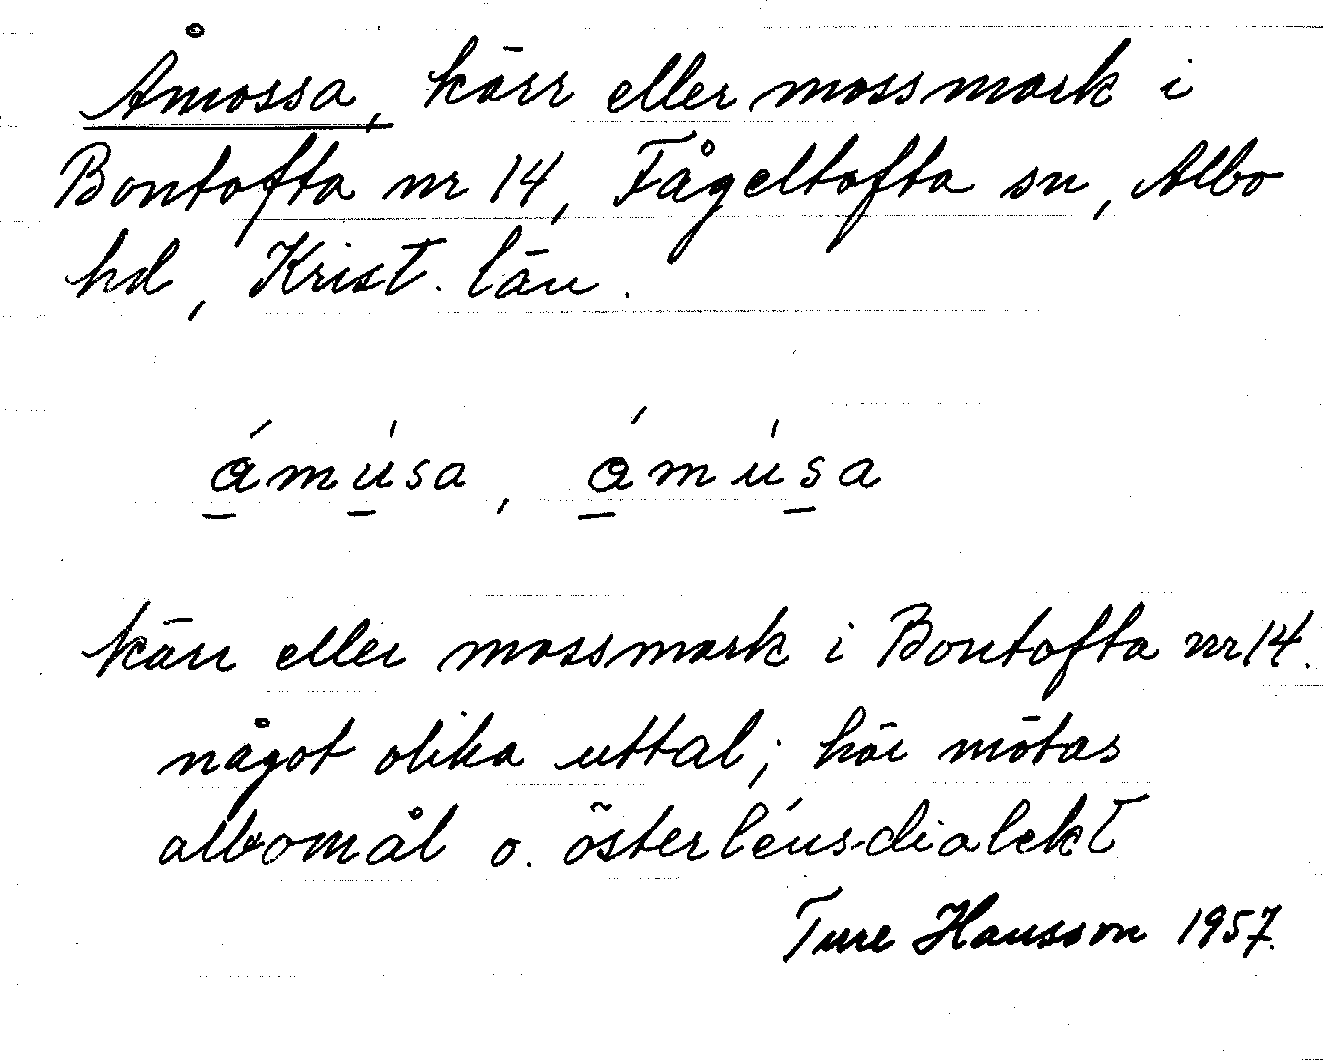 Åmossa, kärr eller mossmark i
Bontofta nr 14, Fågeltofta sn, Albo
hd, Krist. län.
ámúsa, ámúsa
kärr eller mossmark i Bontofta nr 14.
något olika uttal; här mötas
albomål o. österléns-dialekt
Ture Hansson 1957.